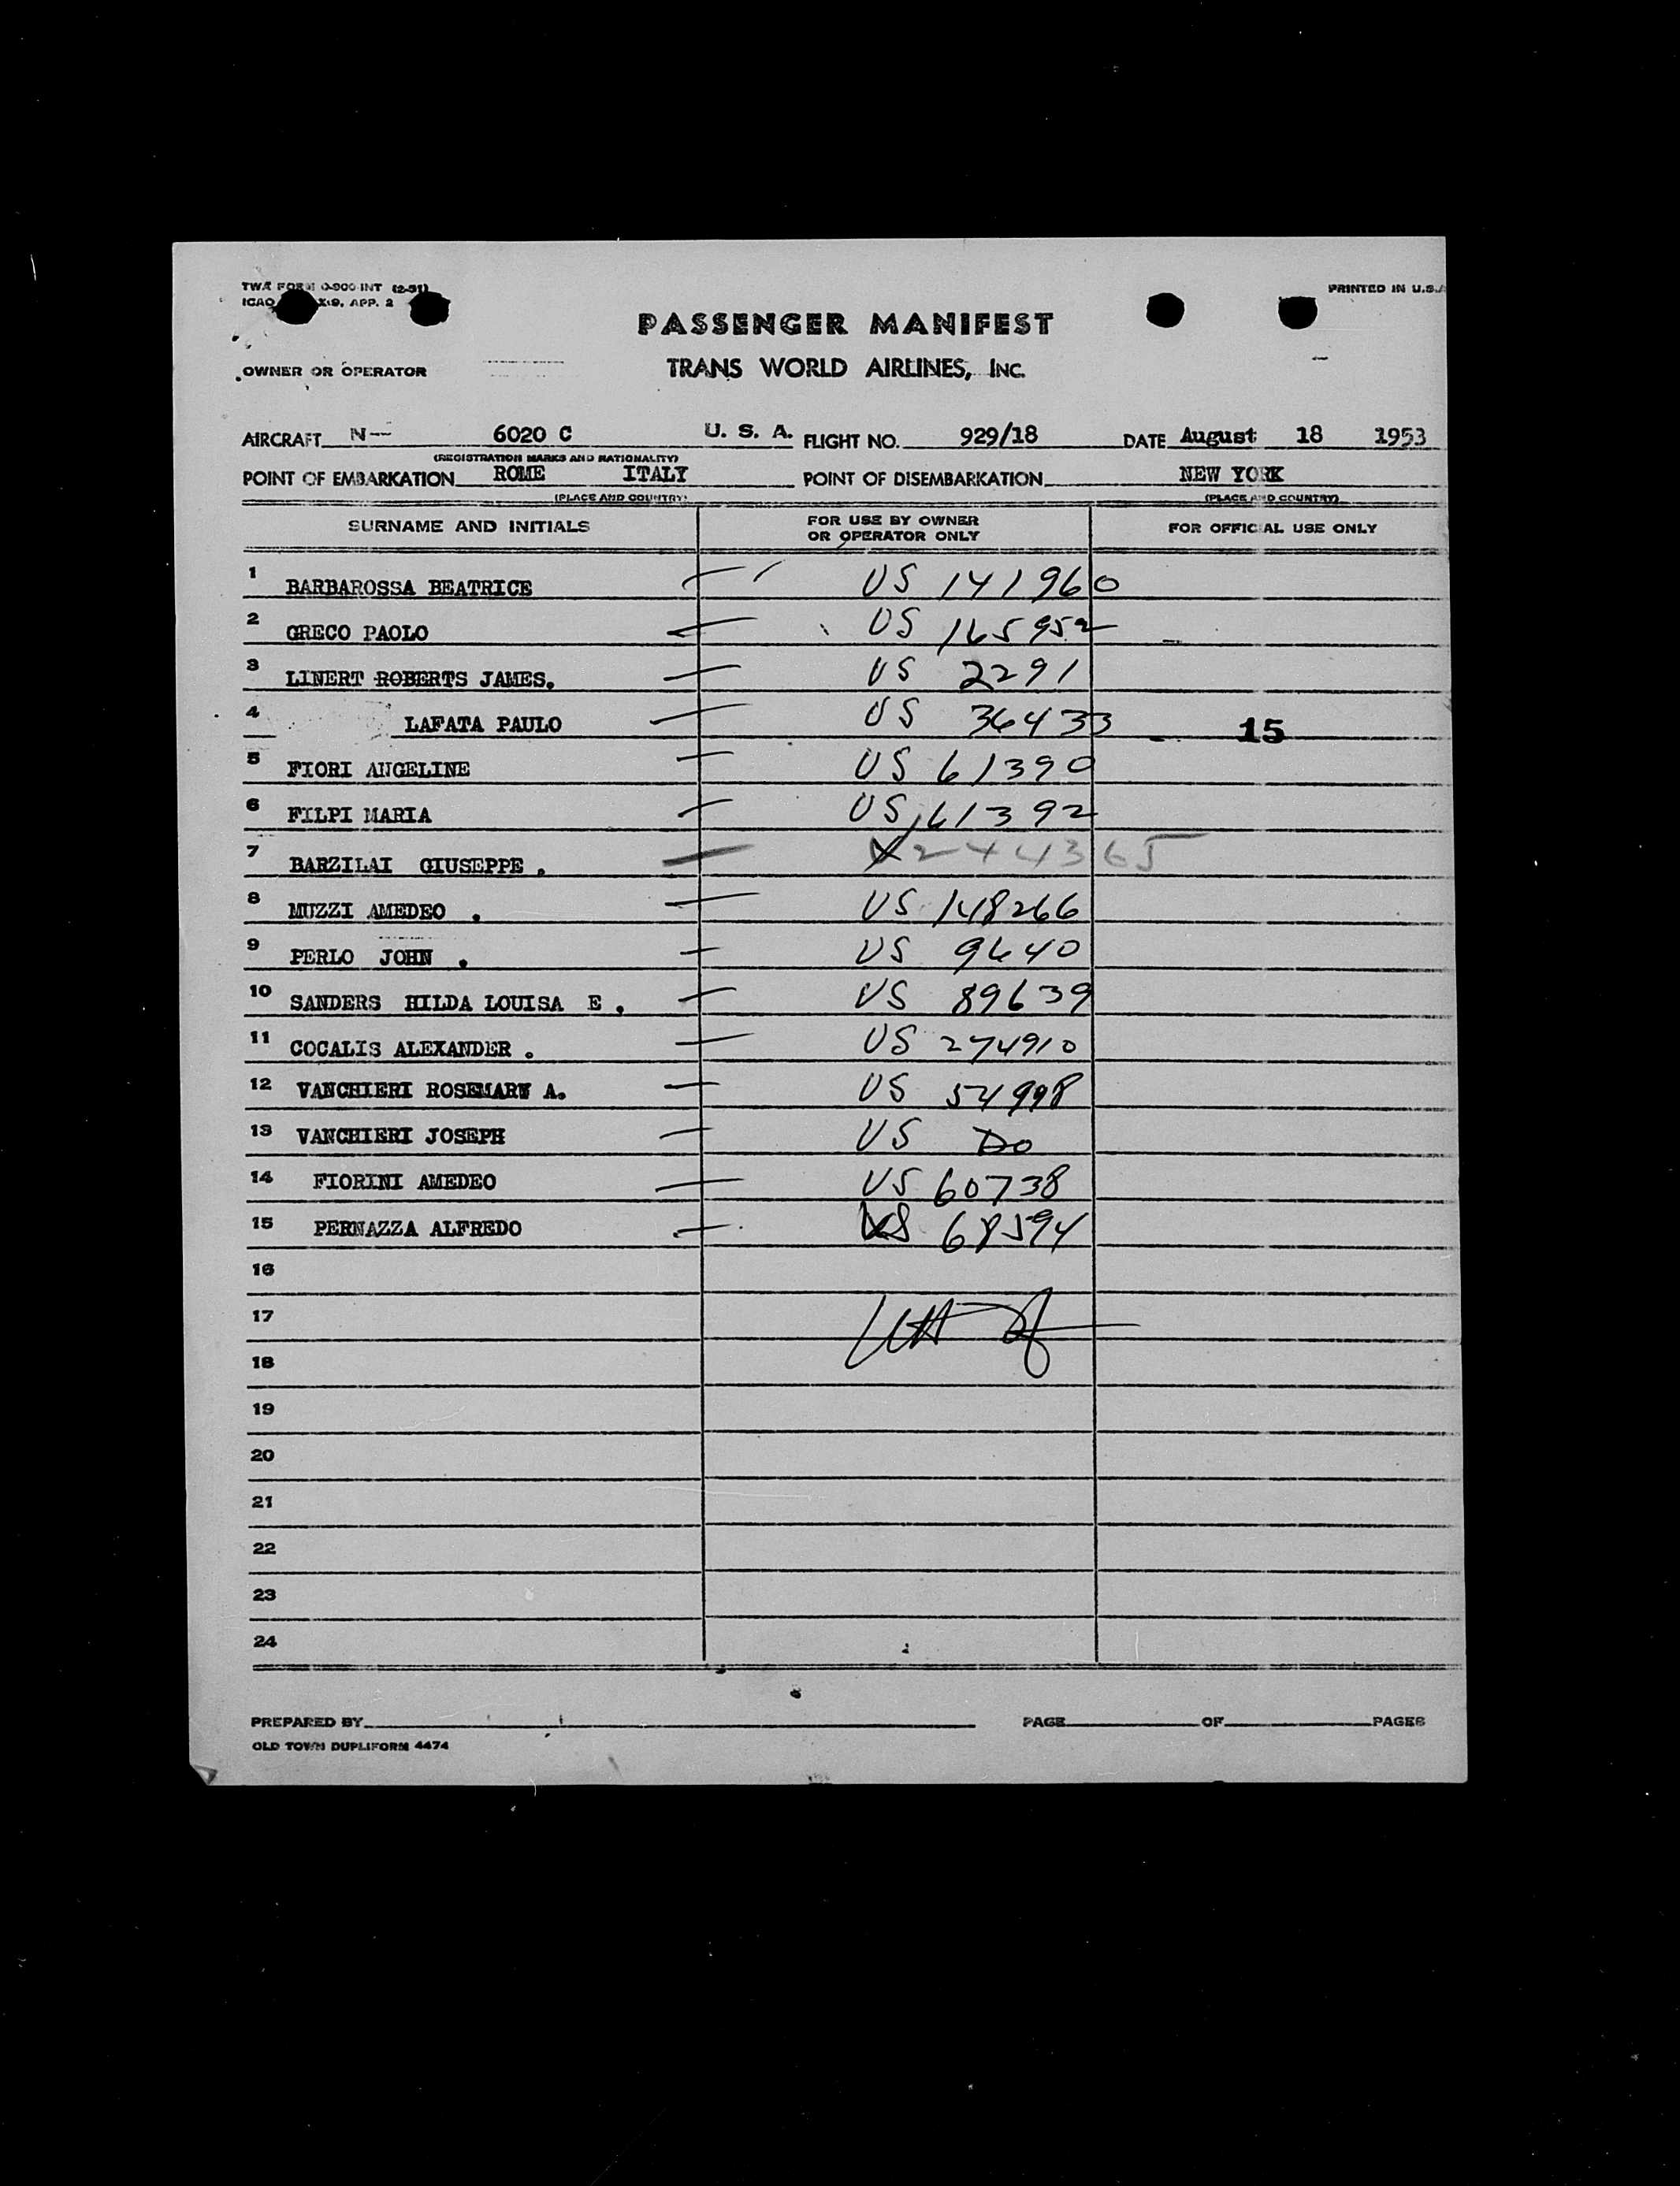 TWA FORM 0-900-INT (2-51)
ICAO X-9, APP. 2
PRINTED IN U.S.A
PASSENGER MANIFEST
OWNER OR OPERATOR TRANS WORLD AIRLINES, INC.
AIRCRAFT N-- 6020 C U. S. A. FLIGHT NO. 929/18 DATE August 18 1953
(REGISTRATION MARKS AND NATIONALITY)
POINT OF EMBARKATION ROME ITALY POINT OF DISEMBARKATION NEW YORK
(PLACE AND COUNTRY) (PLACE AND COUNTRY)
SURNAME AND INITIALS FOR USE BY OWNER OR OPERATOR ONLY FOR OFFICIAL USE ONLY
1 BARBAROSSA BEATRICE US 141960
2 GRECO PAOLO US 165952
3 LINERT ROBERTS JAMES. US 2291
4 LAFATA PAULO US 36433 15
5 FIORI ANGELINE US 61390
6 FILPI MARIA US 61392
7 BARZILAI GIUSEPPE . 244365
8 MUZZI AMEDEO . US 148266
9 PERLO JOHN . US 9640
10 SANDERS HILDA LOUISA E . US 89639
11 COCALIS ALEXANDER . US 274910
12 VANCHIERI ROSEMARY A. US 54998
13 VANCHIERI JOSEPH US Do
14 FIORINI AMEDEO US 60738
15 PERNAZZA ALFREDO US 68594
16
17
18
19
20
21
22
23
24
PREPARED BY PAGE OF PAGES
OLD TOWN DUPLIFORM 4474